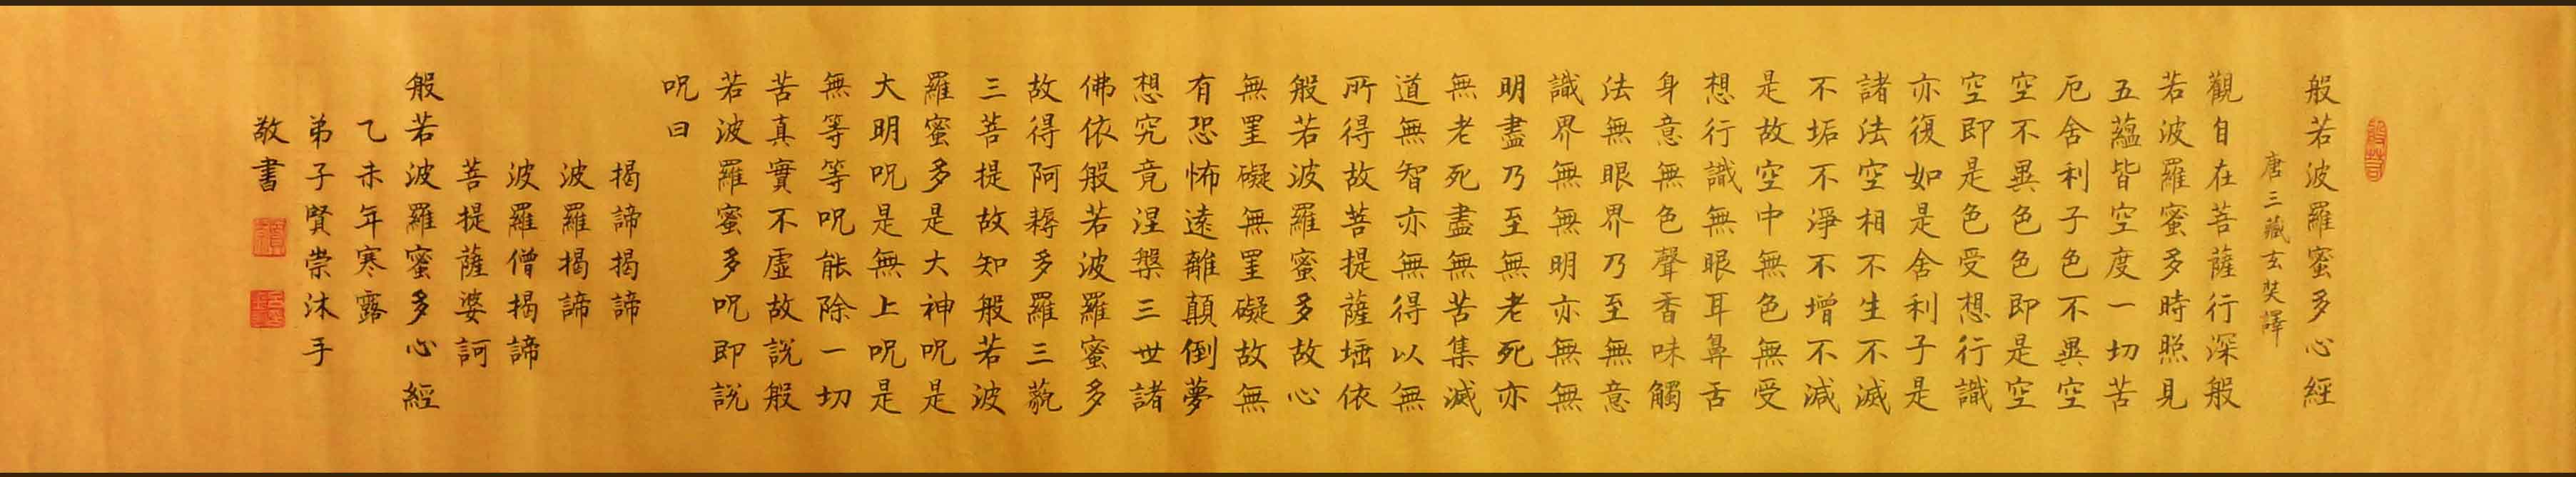 般若波羅蜜多心經
唐三藏玄奘譯
觀自在菩薩行深般
若波羅蜜多時照見
五蘊皆空度一切苦
厄舍利子色不異空
空不異色色即是空
空即是色受想行識
亦復如是舍利子是
諸法空相不生不滅
不垢不淨不增不減
是故空中無色無受
想行識無眼耳鼻舌
身意無色聲香味觸
法無眼界乃至無意
識界無無明亦無無
明盡乃至無老死亦
無老死盡無苦集滅
道無智亦無得以無
所得故菩提薩埵依
般若波羅蜜多故心
無罣礙無罣礙故無
有恐怖遠離顛倒夢
想究竟涅槃三世諸
佛依般若波羅蜜多
故得阿耨多羅三藐
三菩提故知般若波
羅蜜多是大神呪是
大明呪是無上呪是
無等等呪能除一切
苦真實不虛故說般
若波羅蜜多呪即說
呪曰
揭諦揭諦
波羅揭諦
波羅僧揭諦
菩提薩婆訶
般若波羅蜜多心經
乙未年寒露
弟子賢崇沐手
敬書